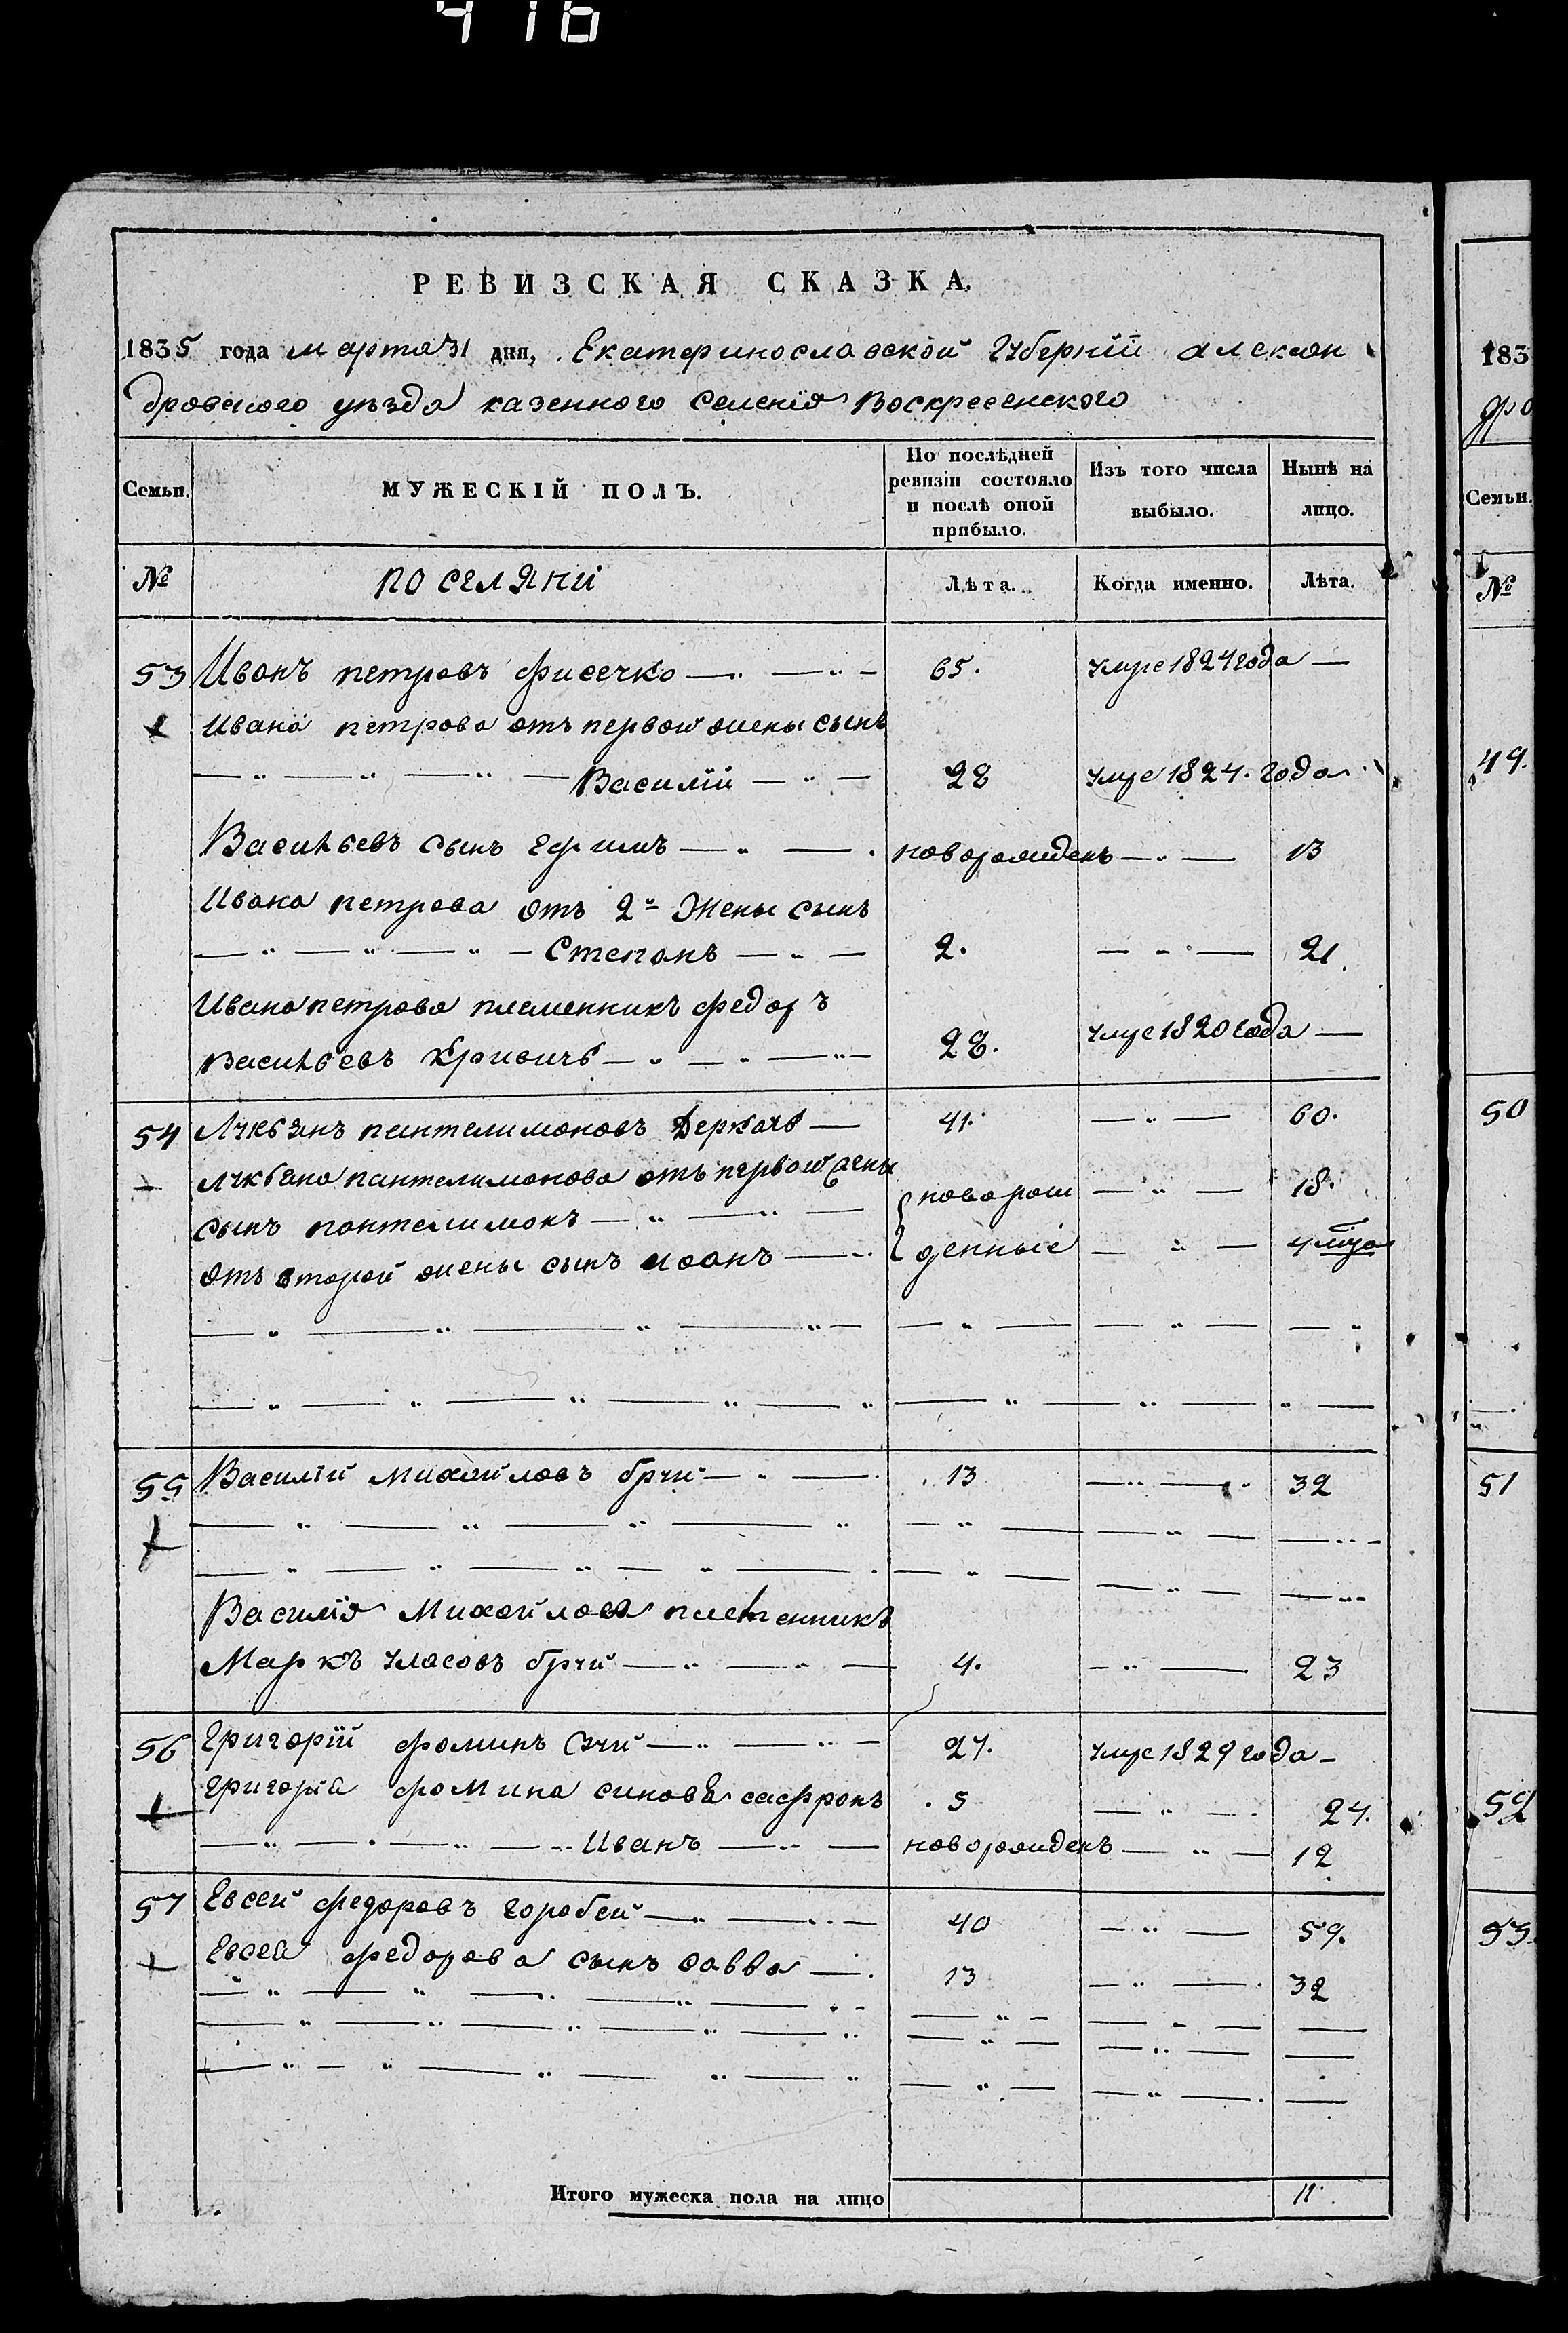 416
РЕВИЗСКАЯ СКАЗКА.
1835 года марта 31 дня, Екатеринославской Губернїи Алексан
дровского уѣзда казенного Селенїя Воскресенского
Семьи. МУЖЕСКІЙ ПОЛЪ. По послѣдней ревизіи состояло и послѣ оной прибыло. Изъ того числа выбыло. Нынѣ на лицо.
№ поселяни Лѣта. Когда именно. Лѣта.
53 Иванъ петровъ фисечко 65. умре 1824 года
Ивана петрова отъ первой жены сынъ
Василїй 28 умре 1824. года
Васильевъ сынъ Ефимъ новорожденъ 13
Ивана петрова отъ 2й Жены сынъ
Степанъ 2. 21.
Ивана петрова племенникъ федоръ
Васильевъ Кривичь 28. умре 1820 года
54 Лукьянъ пантелимоновъ Деркачь 41. 60.
Лукьяна пантелимонова отъ первой жены
сынъ пантелимонъ новорож 18.
отъ второй жены сынъ Иоанъ денные 4
55 Василїй Михайловъ 13 32
Василїя Михайлова племенникъ
Маркъ Уласовъ 4. 23
56 Григорїй фоминъ 27. умре 1829 года
Григорїя фомина синовя сафронъ 5 24.
Иванъ новорожденъ 12
57 Евсей федоровъ горобей 40 59.
Евсея федорова сынъ савва 13 32
Итого мужеска пола на лицо 11.
183
дро
Семьи.
№
49.
50
51
52
53.